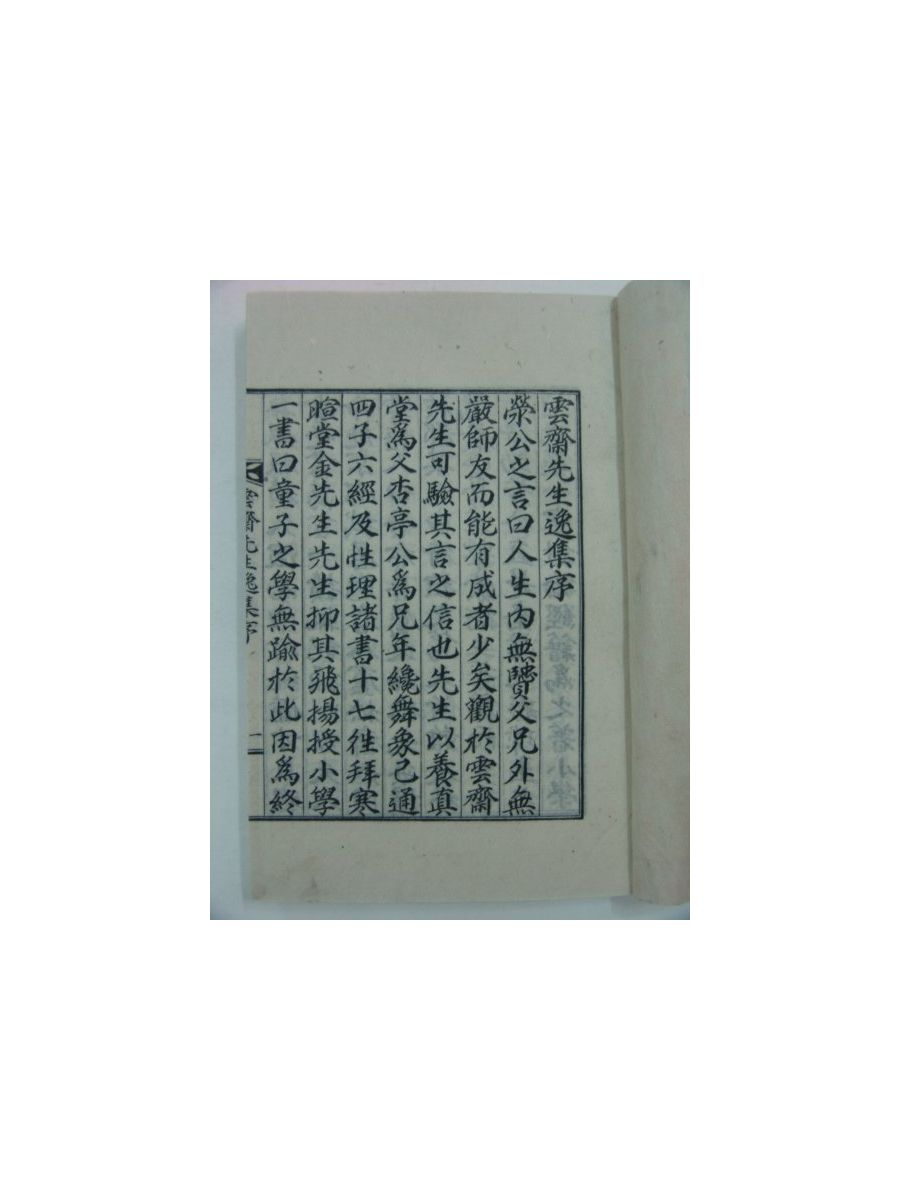 雲齋先生逸集序
滎公之言曰人生內無賢父兄外無
嚴師友而能有成者少矣觀於雲齋
先生可驗其言之信也先生以養真
堂爲父杏亭公爲兄年纔舞象已通
四子六經及性理諸書十七徃拜寒
暄堂金先生先生抑其飛揚授小學
一書曰童子之學無踰於此因爲終
雲齋先生逸集序
一